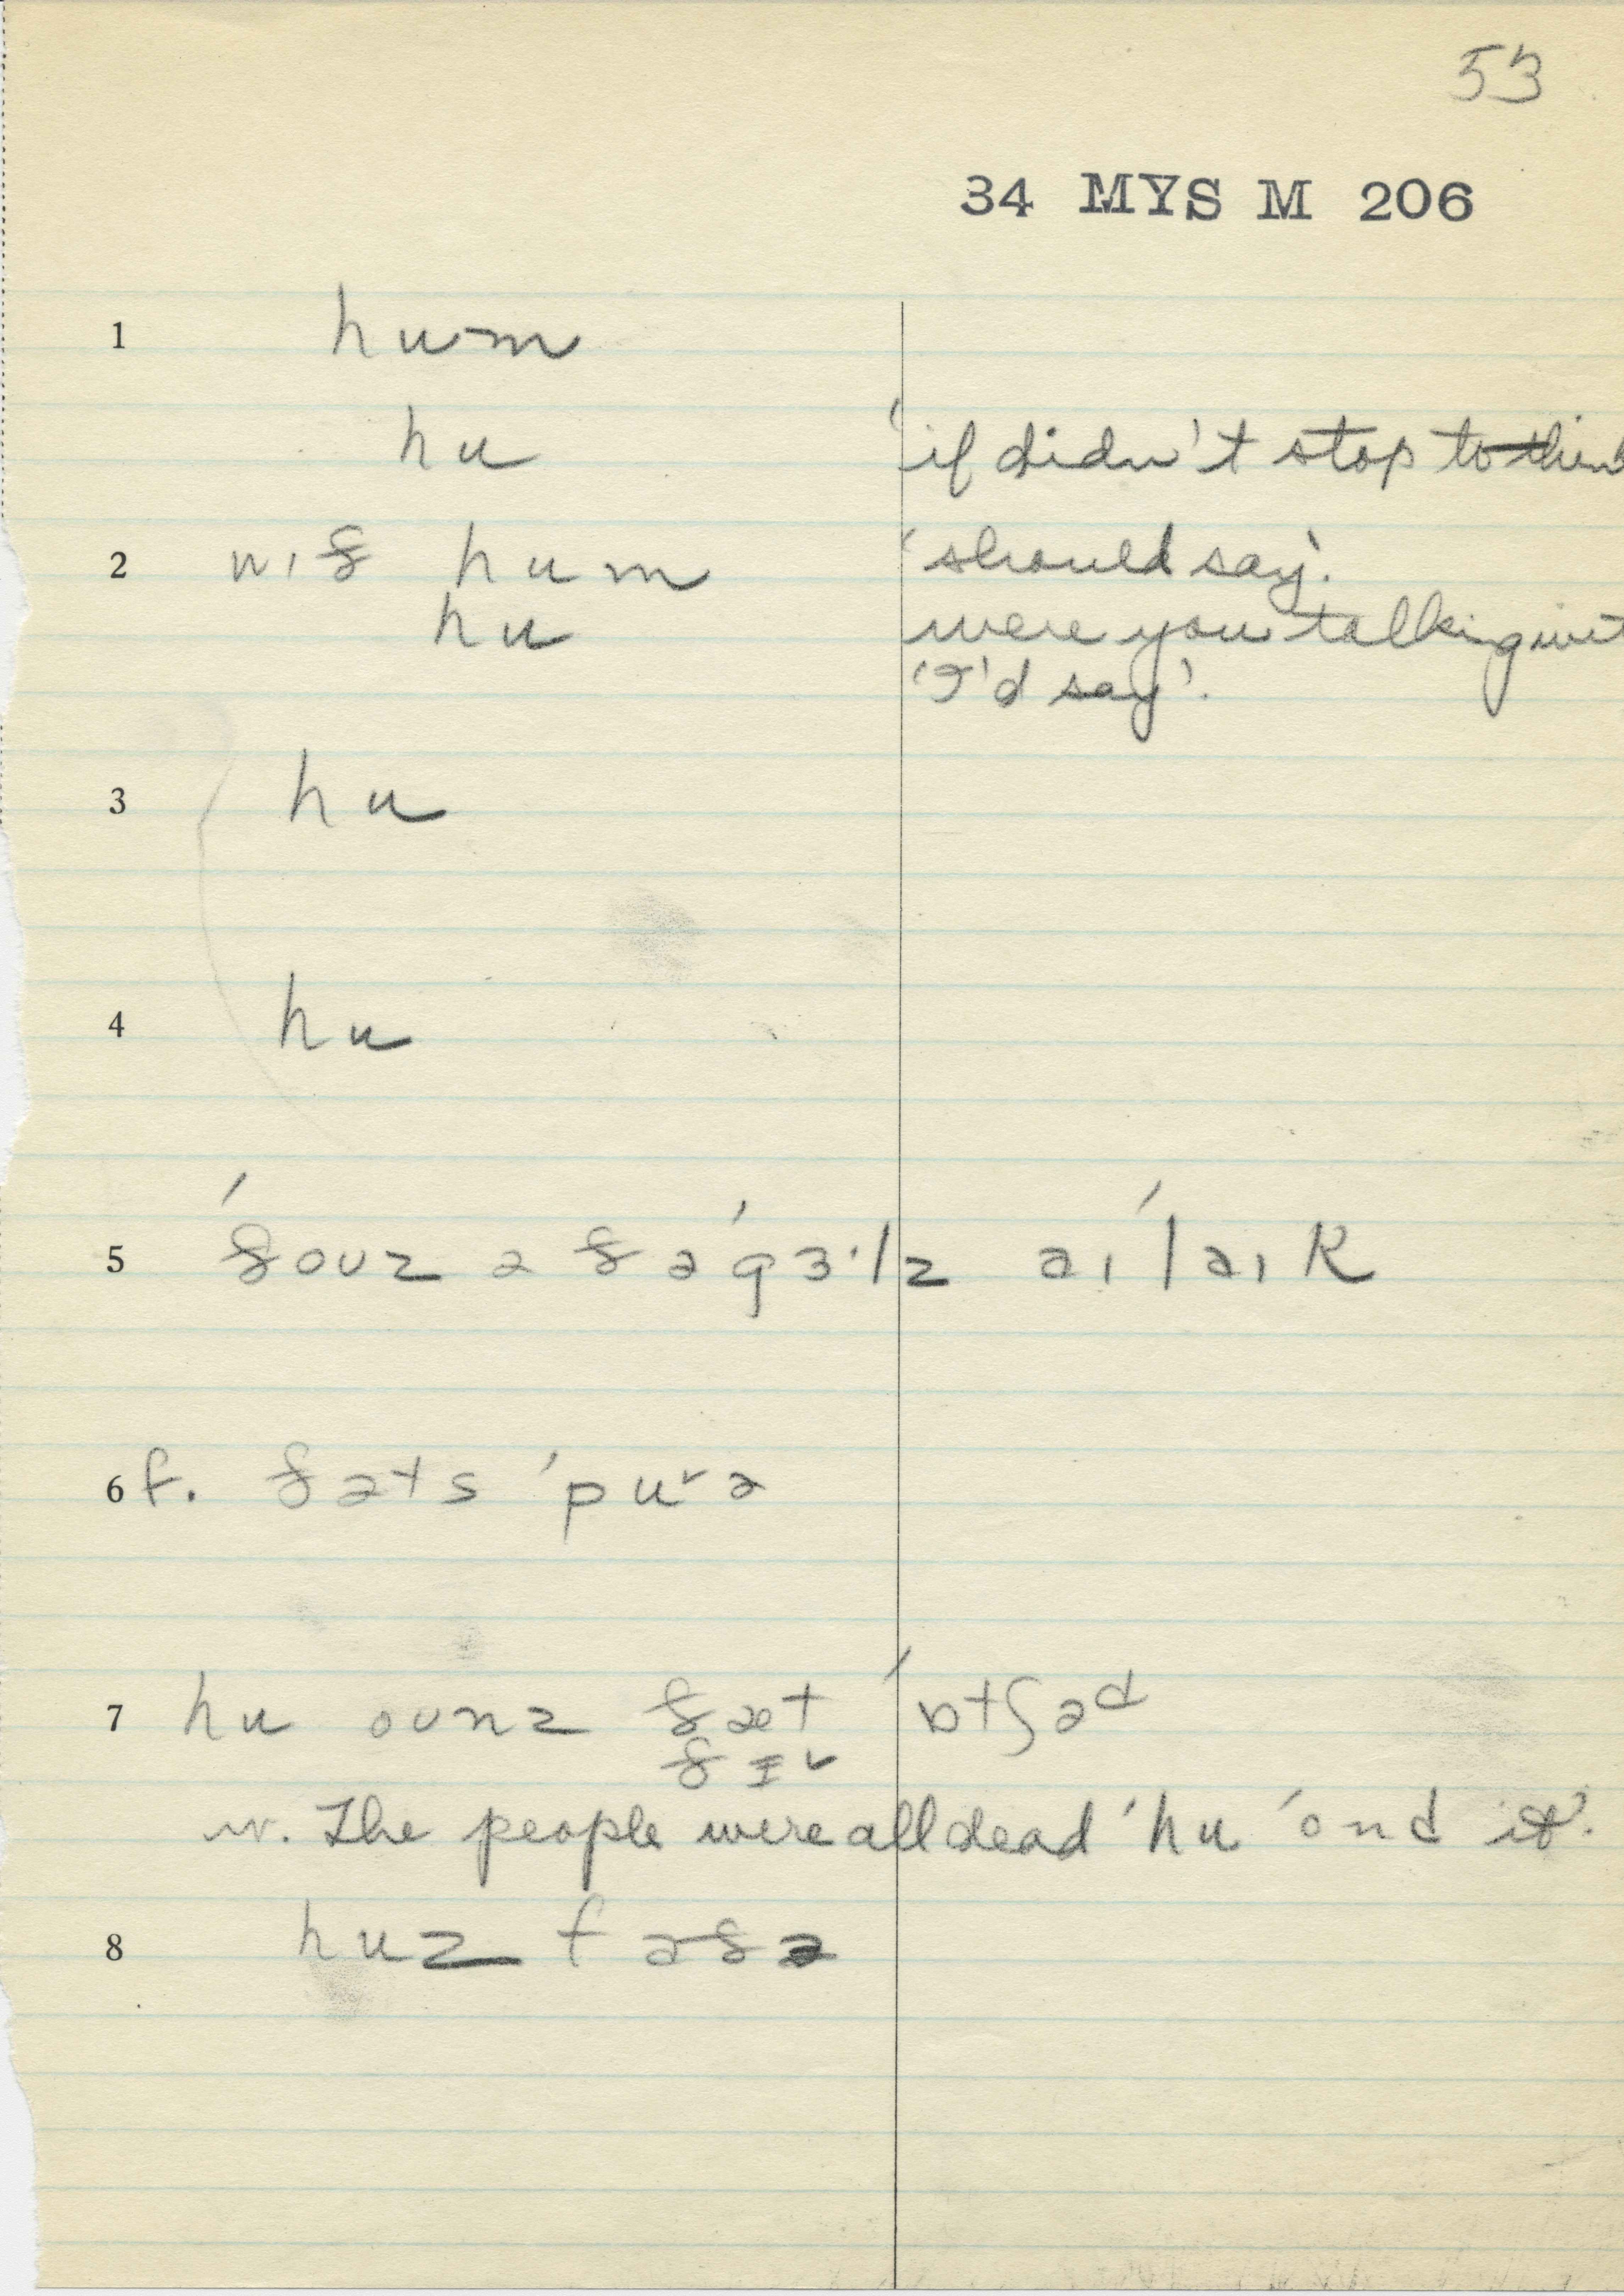 53
34 MYS M 206
1 hum
hu 'if didn't stop to think
2 wɪð hum 'should say'.
hu were you talking wit
'I'd say'.
3 hu
4 hu
5 ˈðouz ə ðə ˈgɜ·lz aɪ ˈlaɪk
6 f. ðəts ˈpurə
7 hu ounz ðæt ˈɒtʃəd
ðɪr
w. The people were all dead 'hu ˈond it'.
8 huz fəðə